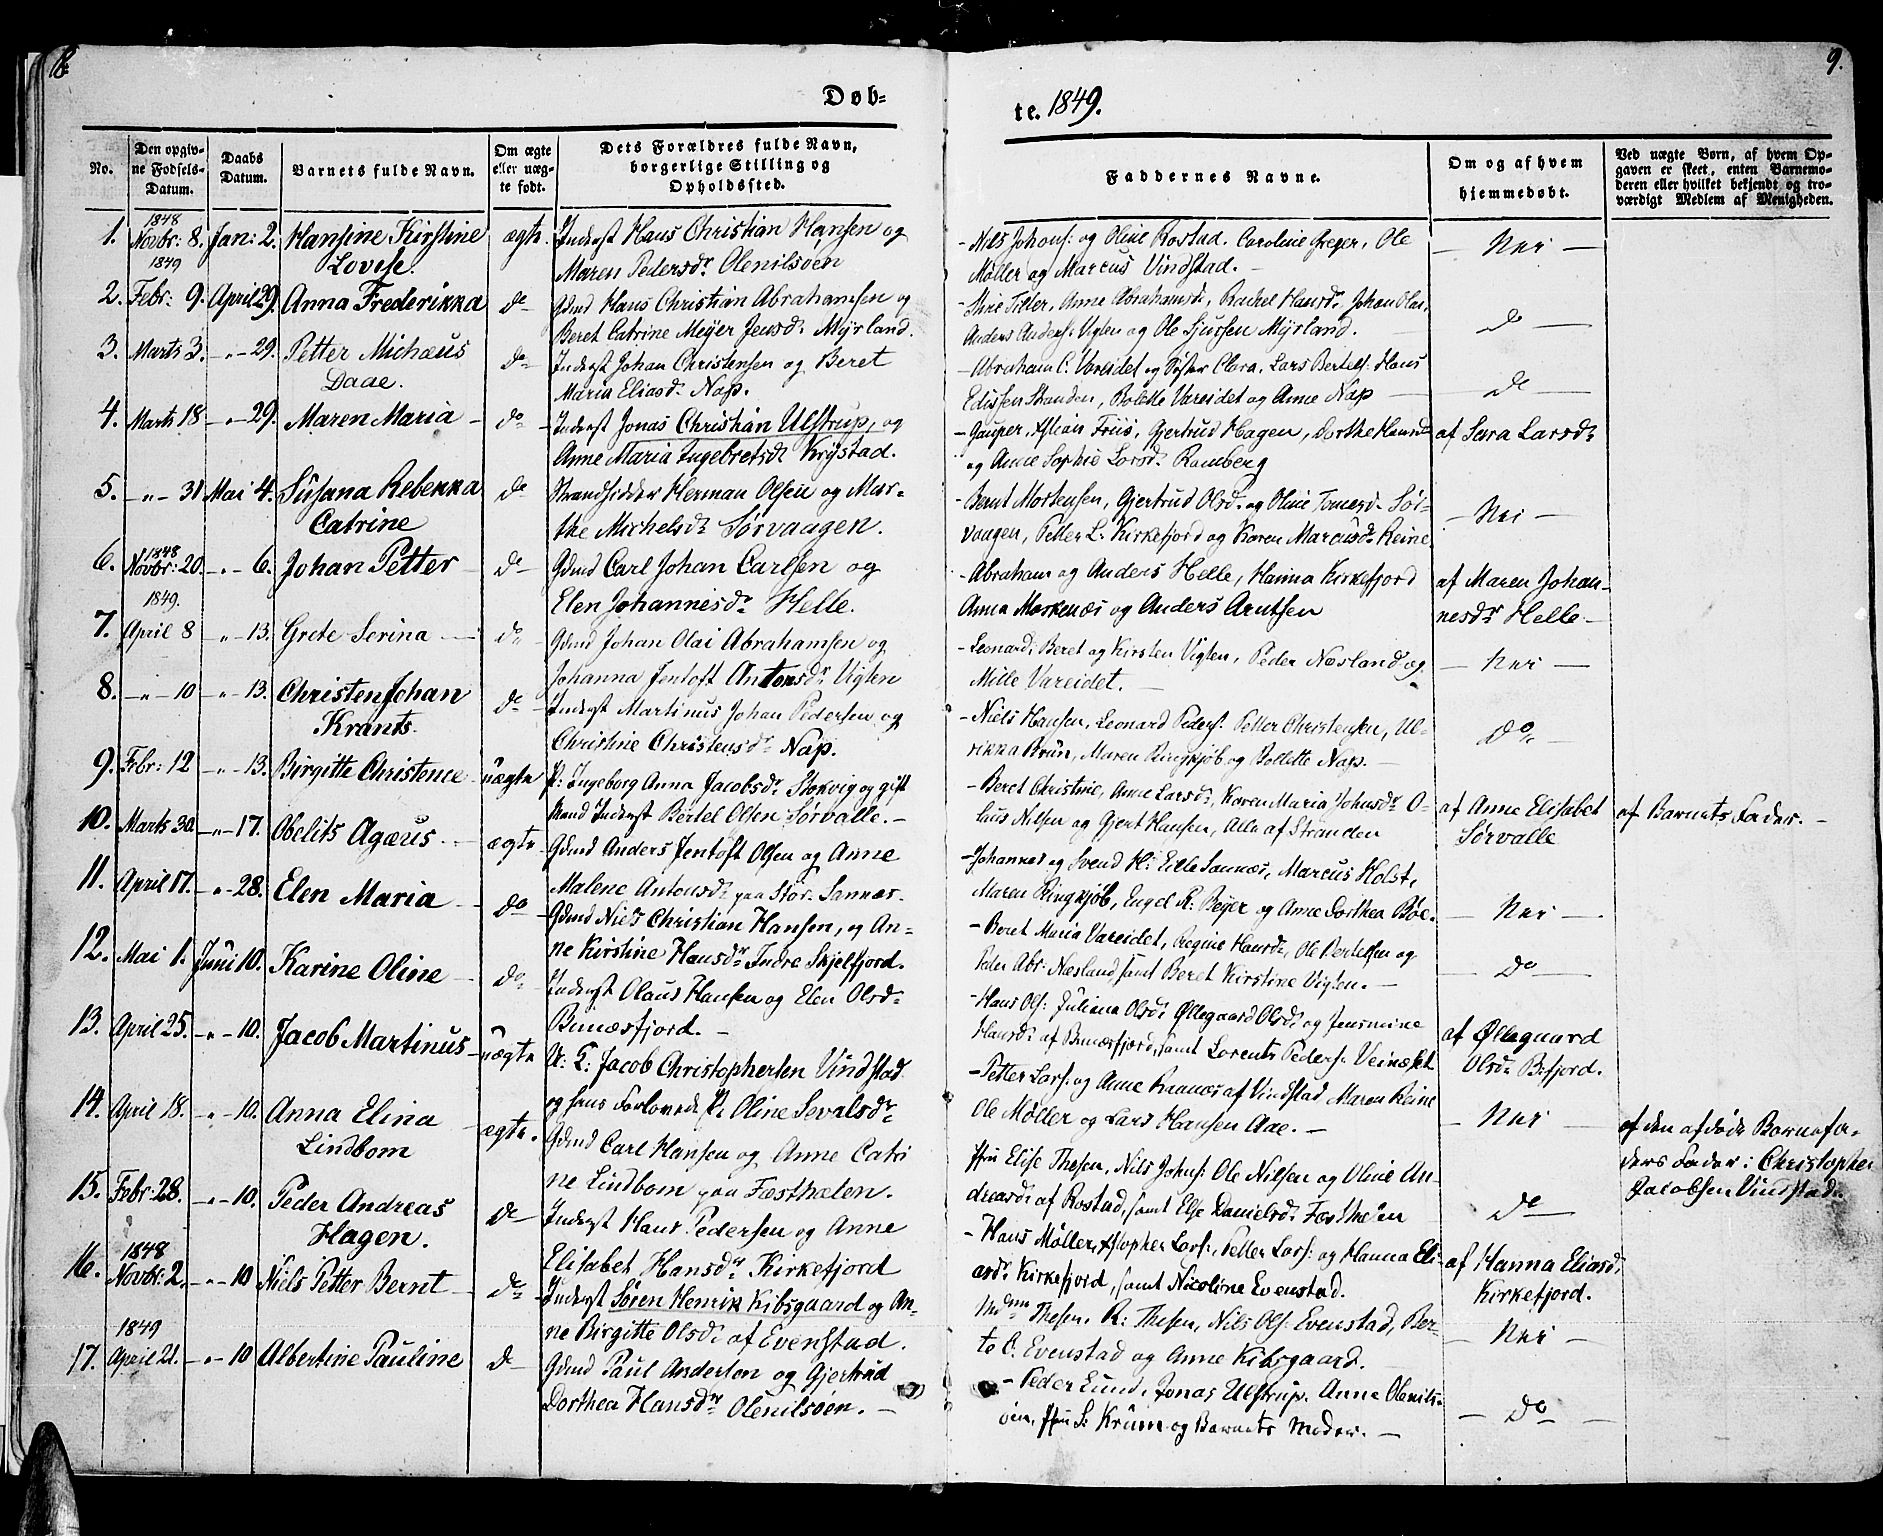 8.
9.
Døb-
te. 1849.
No.
Den opgiv-
ne Fødsels-
Datum.
Daabs
Datum.
Barnets fulde Navn.
Om ægte
eller uæg-
te født.
Dets Forældres fulde Navn,
borgerlige Stilling og
Opholdssted.
Faddernes Navne.
Om og af hvem
hjemmedøbt.
Ved uægte Børn, af hvem Op-
gaven er skeet, enten Barnemo-
deren eller hvilket bekjendt og tro-
værdigt Medlem af Menigheden.
1848
1. Novbr: 8. Jan: 2. Hansine Kirstine ægte Inderst Hans Christian Hansen og
Lovise. Maren Pedersdr Olenilsøen
- Nils Johans: og Oline Rostad. Caroline Greger, Ole
Møller og Marcus Vindstad. - - Nei -
1849
2. Febr: 9. April 29. Anna Frederikka do Gdmd Hans Christian Abrahamsen og
Beret Catrine Meyer Jensdr Myrland.
- Stine Tiller, Anne Abrahamsdr, Rachel Hansdr, Johan Olai,
Anders Anders: Vigten og Ole Sjursen Myrland. do -
3. Marts 3. - " - 29. Petter Michæus do Inderst Johan Christensen og Beret
Daae. Maria Eliasdr Nap.
- Abraham C. Vareidet og Søster Clara, Lars Bertels: Hans
Edissen Stranden, Bolette Vareidet og Anne Nap - do -
4. Marts 18 - " - 29. Maren Maria - do - Inderst Jonas Christian Ulstrup, og
Anne Maria Ingebretsdr Krystad.
- Gasper, Kristian Friis, Gjertrud Hagen, Dorthe Hansdr
og Anne Sophie Larsdr Ramberg af Sara Larsdr
5. - " - 31 Mai 4. Susana Rebekka do Strandsidder Herman Olsen og Mar-
Catrine the Michelsdr Sørvaagen.
- Bernt Mortensen, Gjertrud Olsdr og Oline Tomasdr Sør-
vaagen, Petter L. Kirkefjord og Karen Marcusdr Reine. - Nei -
1848
6. Novbr: 20. - " - 6. Johan Petter do Gdmd Carl Johan Carlsen og
Elen Johannesdr Helle.
- Abraham og Anders Helle, Hanna Kirkefjord
Anna Moskenæs og Anders Arntsen af Maren Johan-
nesdr Helle. -
1849.
7. April 8 - " - 13. Grete Serina - do Gdmd Johan Olai Abrahamsen og
Johanna Jentoft Antonsdr Vigten
- Leonard, Beret og Kirsten Vigten, Peder Næsland og
Mille Vareidet. - - Nei -
8. - " - 10 - " - 13. Christen Johan do - Inderst Martinus Johan Pedersen og
Krants. Christine Christensdr Nap.
- Niels Hansen, Leonard Peders: Petter Christensen, Ul-
rikka Brun, Maren Ringkjøb og Bollette Nap. - do -
9. Febr: 12 - " - 13. Birgitte Christence uægte P: Ingeborg Anna Jacobsdr Stokvig og gift
Mand Inderst Bertel Olsen Sørvalle. -
- Beret Christine, Anne Larsdr, Karen Maria Johnsdr O-
laus Nilsen og Gjert Hansen, Alle af Stranden
af Anne Elisabet
Sørvalle
af Barnets Fader. -
10. Marts 30. - " - 17. Obelits Agæus - ægte Gdmd Anders Jentoft Olsen og Anne
Malene Antonsdr paa Stor: Sannæs.
- Johannes og Svend H: Lille Sannæs, Marcus Holst,
Maren Ringkjøb, Engel R: Beyer og Anne Dorthea Bøe. - Nei -
11. April 17. - " - 28. Elen Maria - do Gdmd Niels Christian Hansen, og An-
ne Kirstine Hansdr Indre Skjelfjord.
- Beret Maria Vareidet, Regine Hansdr, Ole Bertelsen og
Peder Abr: Næsland, samt Beret Kirstine Vigten. - - do -
12. Mai 1. Juni 10. Karine Oline - do Inderst Olaus Hansen og Elen Olsdr
Bunæsfjord. -
- Hans Ols: Juliana Olsdr Øllegaard Olsdr og Jensmine
Hansdr af Bunæsfjord, samt Lorents Peders: Veinæset
af Øllegaard
Olsdr B:fjord.
13. April 25. - " - 10. Jacob Martinus uægte U. K: Jacob Christophersen Vindstad
og hans Forlovede P: Oline Sevalsdr
- Petter Lars: og Anne Ramnæs af Vindstad Maren Reine
Ole Møller og Lars Hansen Aae. - - Nei -
af den afdøde Barnefa-
ders Fader: Christopher
Jacobsen Vindstad.
14. April 18. - " - 10. Anna Elina - ægte. Gdmd Carl Hansen og Anne Catri
Lindbom ne Lindbom paa Fæsthælen.
Elise Thesen, Nils Johns: Ole Nilsen og Oline An-
dreasdr af Rostad, samt Else Danielsdr Fæsthelen do
15. Febr: 28. - " - 10. Peder Andreas do Inderst Hans Pedersen og Anne
Hagen. Elisabet Hansdr Kirkefjord
- Hans Møller, Kristopher Lars:, Petter Lars: og Hanna Eli-
asdr Kirkefjord, samt Nicoline Evenstad.
af Hanna Eliasdr
Kirkefjord.
1848
16. Novbr: 2. - " - 10 Niels Petter Bernt - do Inderst Søren Henrik Kibsgaard og An-
ne Birgitte Olsdr af Evenstad.
Mdme Thesen, R: Thesen, Nils Ols: Evenstad, Ber-
te C. Evenstad og Anne Kibsgaard. - Nei -
1849
17. April 21. - " - 10 Albertine Pauline do Gdmd Paul Anderson og Gjertrud
Dorthea Hansdr Olenilsøen. -
- Peder Lund, Jonas Ulstrup, Anne Olenils-
øen, S: Krüm og Barnets Moder. - - do -